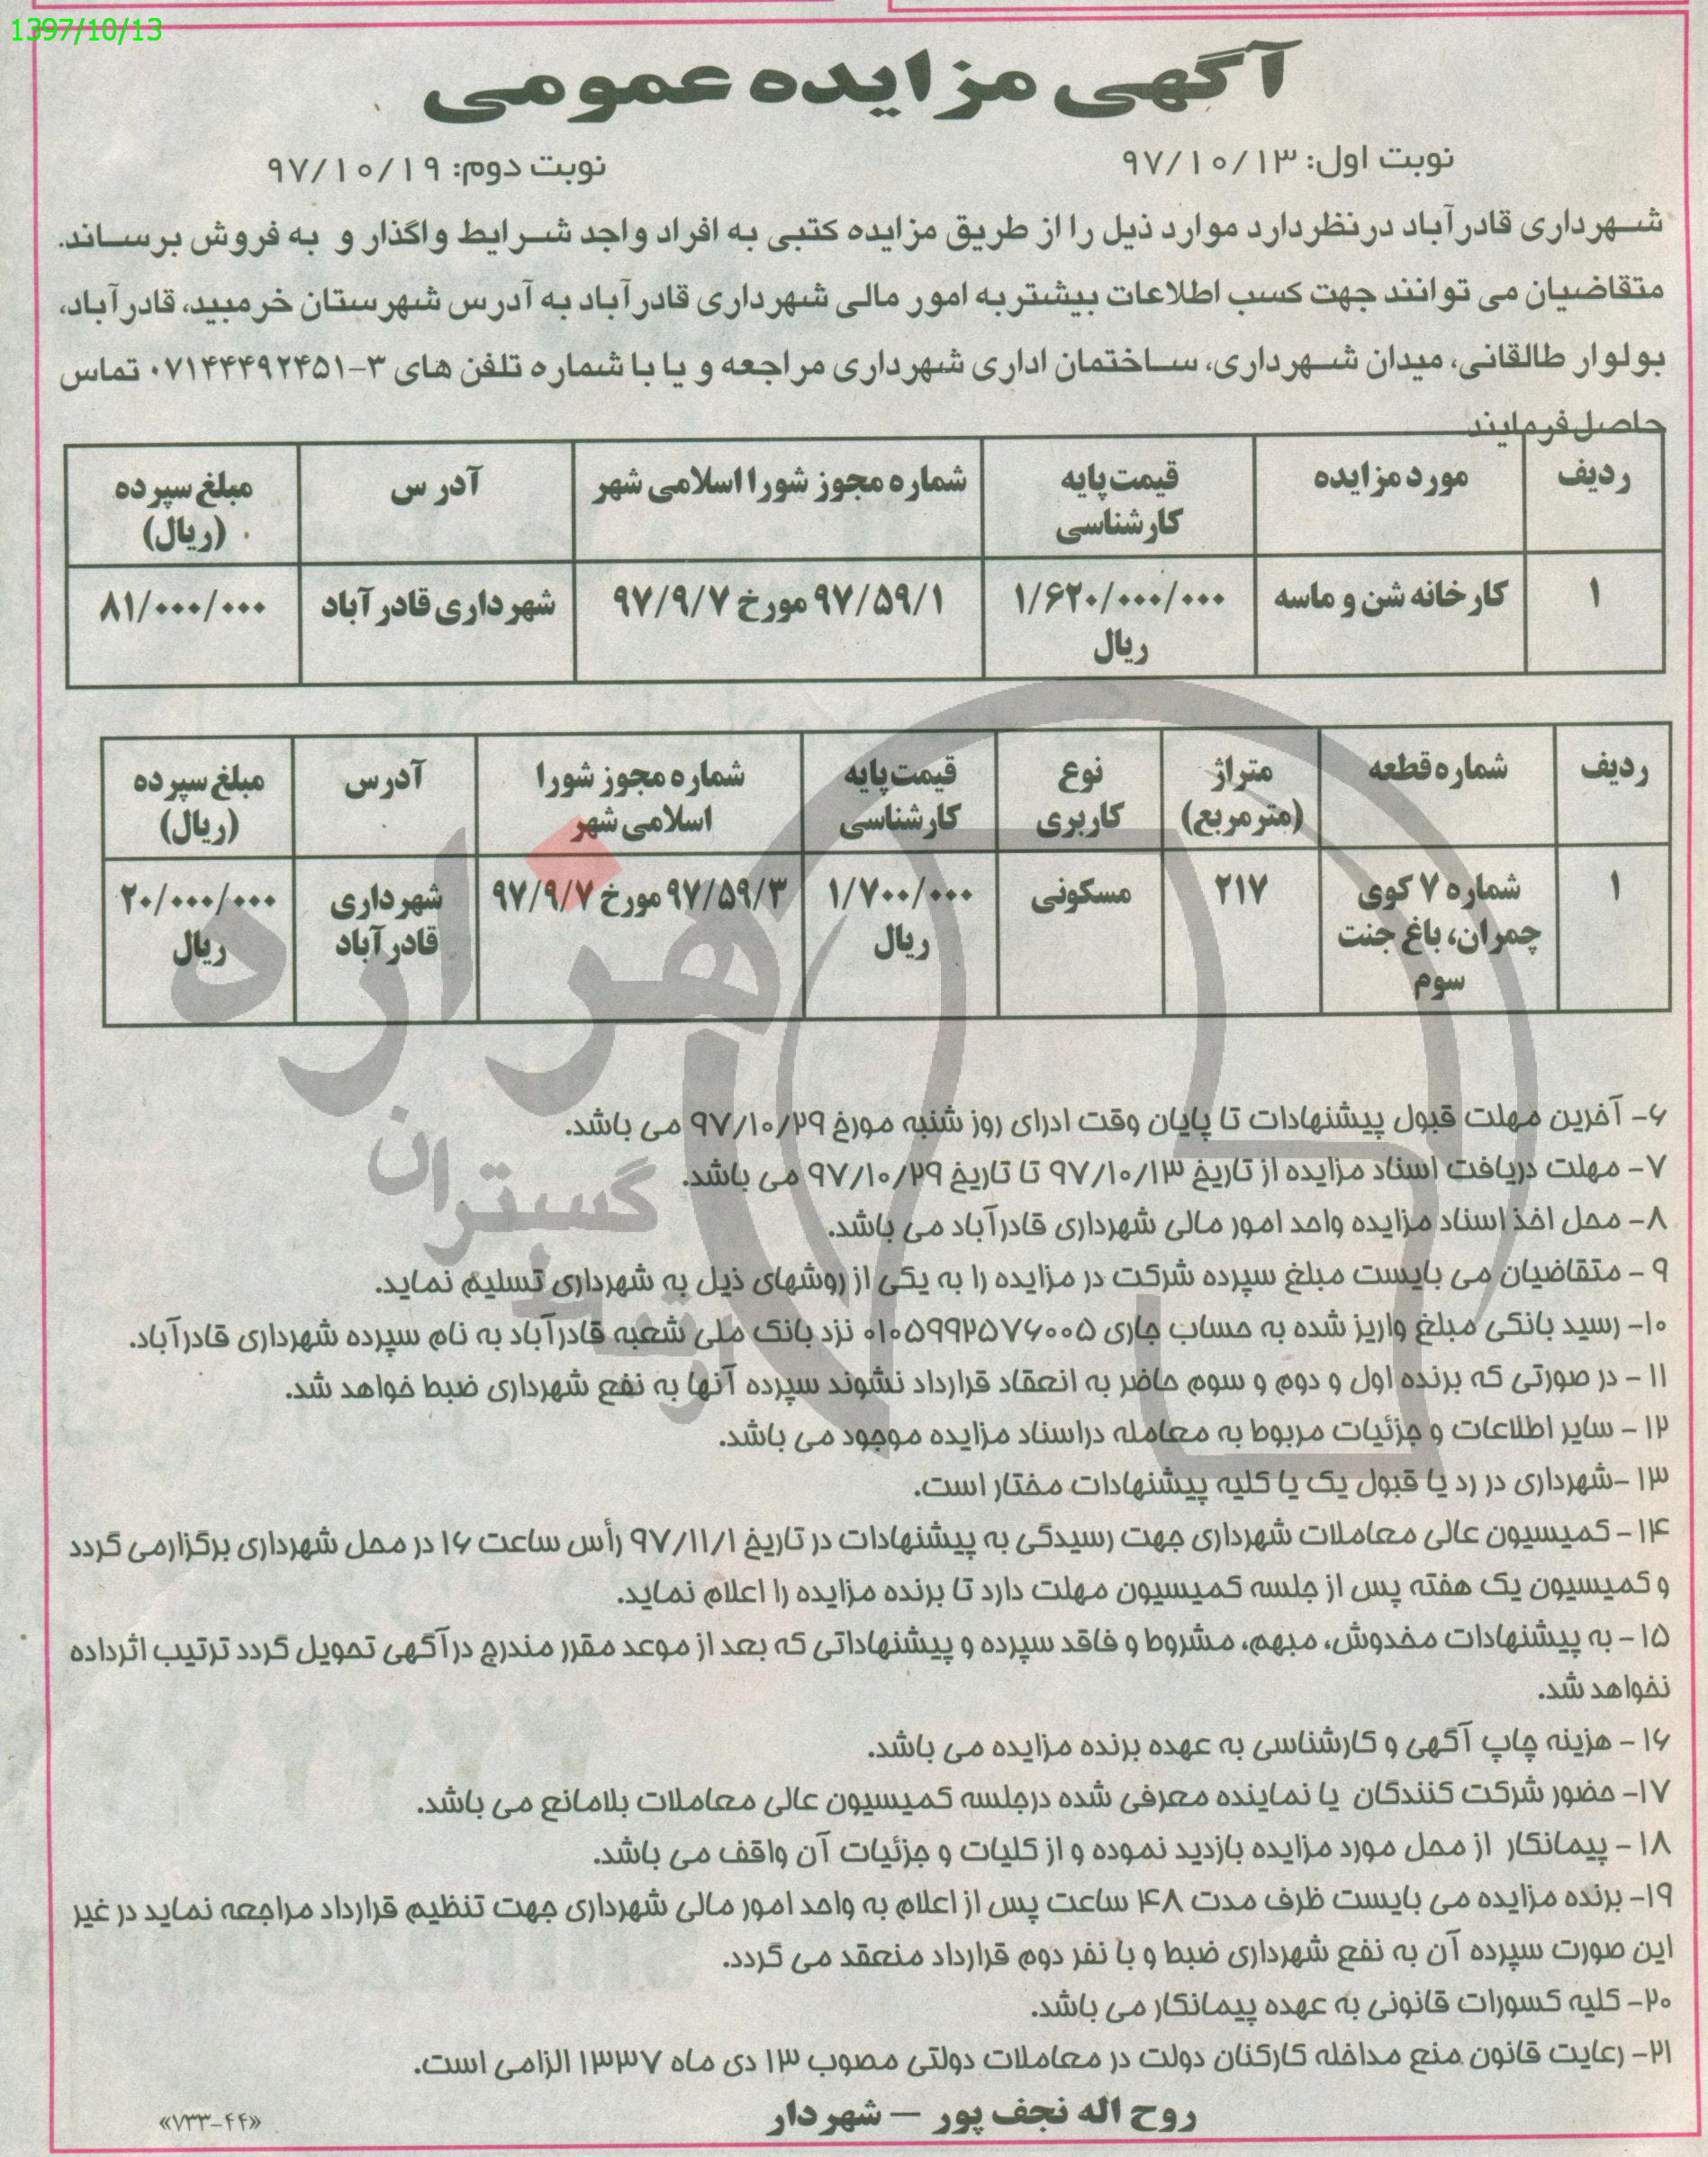 1397/10/13
آگهی مزایده عمومی
نوبت اول: ۹۷/۱۰/۱۳
نوبت دوم: ۹۷/۱۰/۱۹
شهرداری قادرآباد درنظردارد موارد ذیل را از طریق مزایده کتبی به افراد واجد شرایط واگذار و به فروش برساند.
متقاضیان می توانند جهت کسب اطلاعات بیشتربه امور مالی شهرداری قادرآباد به آدرس شهرستان خرمبید، قادرآباد،
بولوار طالقانی، میدان شهرداری، ساختمان اداری شهرداری مراجعه و یا با شماره تلفن های ۳-۰۷۱۴۴۴۹۲۴۵۱ تماس
حاصل فرمایند
ردیف | مورد مزایده | قیمت پایه کارشناسی | شماره مجوز شورا اسلامی شهر | آدرس | مبلغ سپرده (ریال)
۱ | کارخانه شن و ماسه | ۱/۶۲۰/۰۰۰/۰۰۰ ریال | ۹۷/۵۹/۱ مورخ ۹۷/۹/۷ | شهرداری قادرآباد | ۸۱/۰۰۰/۰۰۰
ردیف | شماره قطعه | متراژ (مترمربع) | نوع کاربری | قیمت پایه کارشناسی | شماره مجوز شورا اسلامی شهر | آدرس | مبلغ سپرده (ریال)
۱ | شماره ۷ کوی چمران، باغ جنت سوم | ۲۱۷ | مسکونی | ۱/۷۰۰/۰۰۰ ریال | ۹۷/۵۹/۳ مورخ ۹۷/۹/۷ | شهرداری قادرآباد | ۲۰/۰۰۰/۰۰۰ ریال
هزاره
گستران
۶- آخرین مهلت قبول پیشنهادات تا پایان وقت ادرای روز شنبه مورخ ۹۷/۱۰/۲۹ می باشد.
۷- مهلت دریافت اسناد مزایده از تاریخ ۹۷/۱۰/۱۳ تا تاریخ ۹۷/۱۰/۲۹ می باشد.
۸- محل اخذ اسناد مزایده واحد امور مالی شهرداری قادرآباد می باشد.
۹ - متقاضیان می بایست مبلغ سپرده شرکت در مزایده را به یکی از روشهای ذیل به شهرداری تسلیم نماید.
۱۰- رسید بانکی مبلغ واریز شده به حساب جاری ۰۱۰۵۹۹۲۵۷۶۰۰۵ نزد بانک ملی شعبه قادرآباد به نام سپرده شهرداری قادرآباد.
۱۱ - در صورتی که برنده اول و دوم و سوم حاضر به انعقاد قرارداد نشوند سپرده آنها به نفع شهرداری ضبط خواهد شد.
۱۲ - سایر اطلاعات و جزئیات مربوط به معامله دراسناد مزایده موجود می باشد.
۱۳ -شهرداری در رد یا قبول یک یا کلیه پیشنهادات مختار است.
۱۴- کمیسیون عالی معاملات شهرداری جهت رسیدگی به پیشنهادات در تاریخ ۹۷/۱۱/۱ رأس ساعت ۱۶ در محل شهرداری برگزارمی گردد
و کمیسیون یک هفته پس از جلسه کمیسیون مهلت دارد تا برنده مزایده را اعلام نماید.
۱۵ - به پیشنهادات مخدوش، مبهم، مشروط و فاقد سپرده و پیشنهاداتی که بعد از موعد مقرر مندرج درآگهی تحویل گردد ترتیب اثرداده
نخواهد شد.
۱۶ - هزینه چاپ آگهی و کارشناسی به عهده برنده مزایده می باشد.
۱۷- حضور شرکت کنندگان یا نماینده معرفی شده درجلسه کمیسیون عالی معاملات بلامانع می باشد.
۱۸ - پیمانکار از محل مورد مزایده بازدید نموده و از کلیات و جزئیات آن واقف می باشد.
۱۹- برنده مزایده می بایست ظرف مدت ۴۸ ساعت پس از اعلام به واحد امور مالی شهرداری جهت تنظیم قرارداد مراجعه نماید در غیر
این صورت سپرده آن به نفع شهرداری ضبط و با نفر دوم قرارداد منعقد می گردد.
۲۰- کلیه کسورات قانونی به عهده پیمانکار می باشد.
۲۱- رعایت قانون منع مداخله کارکنان دولت در معاملات دولتی مصوب ۱۳ دی ماه ۱۳۳۷ الزامی است.
روح اله نجف پور – شهردار
«۷۳۳-۴۴»